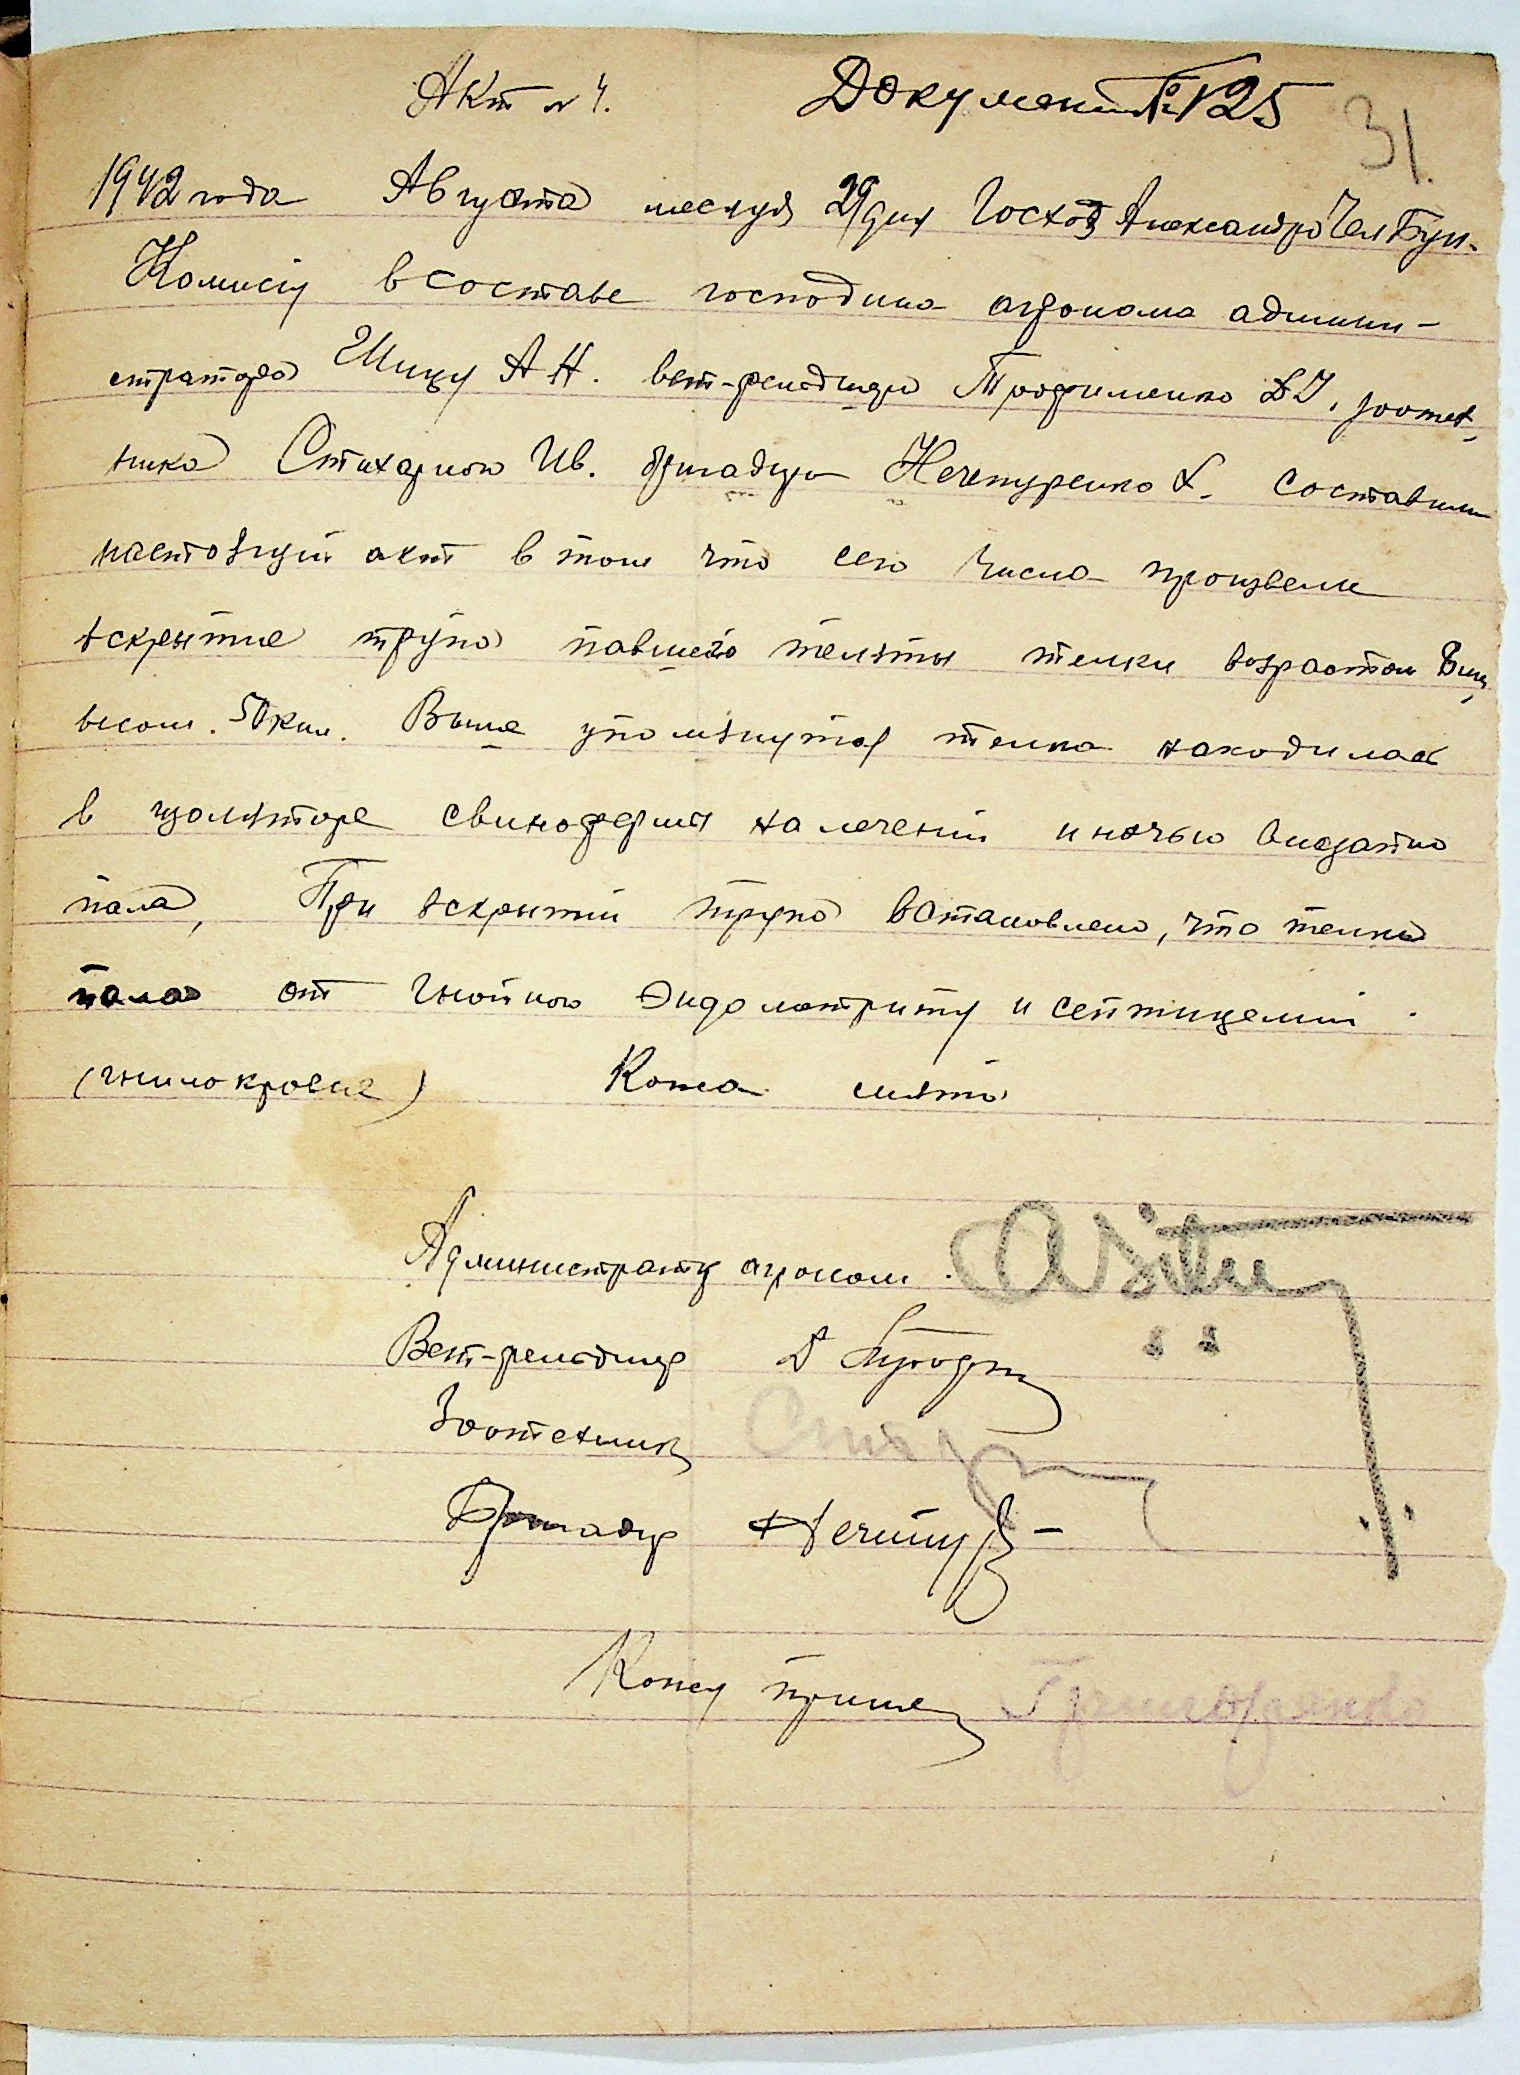 Акт № 4. Документ № 125
31.
1942 года Августа месяця 29 дня Госхоз Александро
Комисія в составе господина агронома админи-
стратора Шицу А Н. вет-фельдшера Трофименко Д И, зоотех,
ника Стихарного Ив. бригадира Нечепуренко Х. составили
настоящий акт в том что сего числа произвели
вскрытие трупа павшего теляты телки возрастом
весом. 50 кил. Выше упомянутая телка находилась
в изоляторе свинофермы на лечении и ночью внезапно
пала, При вскрытии трупа встановлено, что телка
пала от гнойного эндометриту и септицемии.
(гнилокровие) Кожа снята
Администрату агроном.
Вет-фельдшер Д
Зоотехник
Бригадир Нечепур
Кожу принял Григоренко